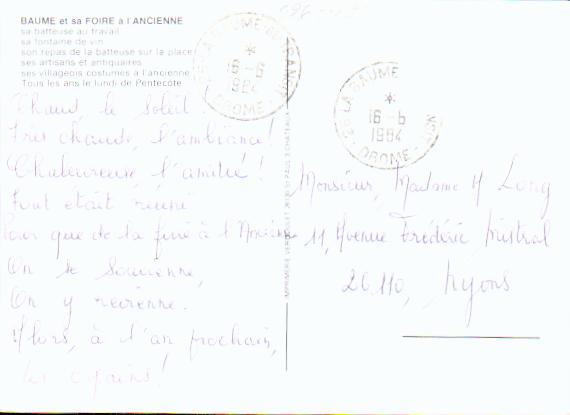 BAUME et sa FOIRE à l'ANCIENNE
sa batteuse au travail
sa fontaine de vin
son repas de la batteuse sur la place
ses artisans et antiquaires
ses villageois costumés à l'ancienne
Tous les ans le lundi de Pentecôte
26 LA BAUME DE TRANSIT
16-6
1984
DROME
26 LA BAUME
16-6
1984
DROME
Chaud, le soleil!
Très chaude, l'ambiance!
Chaleureuse l'amitié!
Tout était réuni
Pour que de la foire à l'Ancienne
On se souvienne,
On y revienne.
Alors, à l'an prochain,
les copains!
Monsieur, Madame M Long
11, Avenue Frédéric Mistral
26110, Nyons